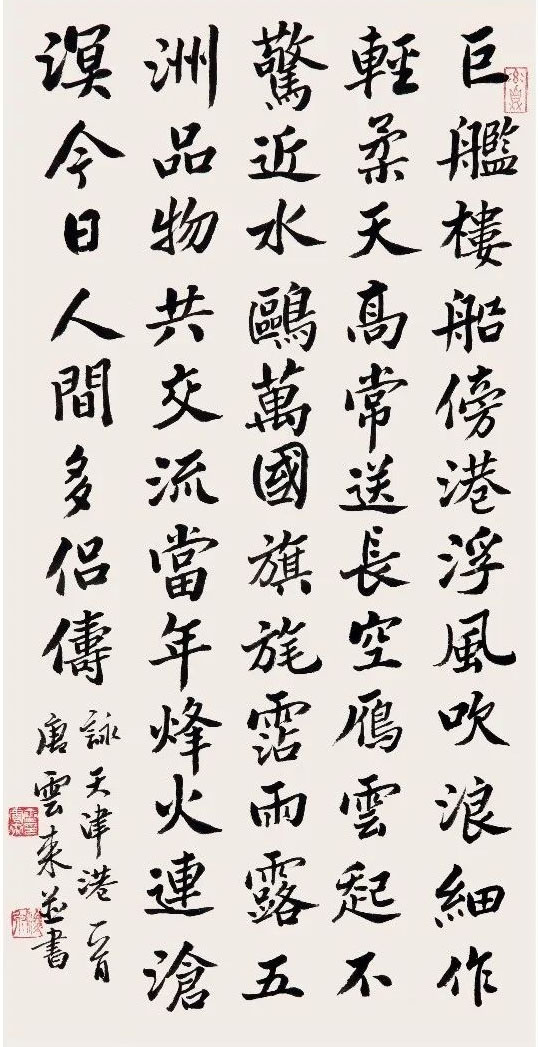 巨艦樓船傍港浮風吹浪細作
輕柔天高常送長空雁雲起不
驚近水鷗萬國旗旄霑雨露五
洲品物共交流當年烽火連滄
溟今日人間多侶儔
詠天津港一首
唐雲来並書